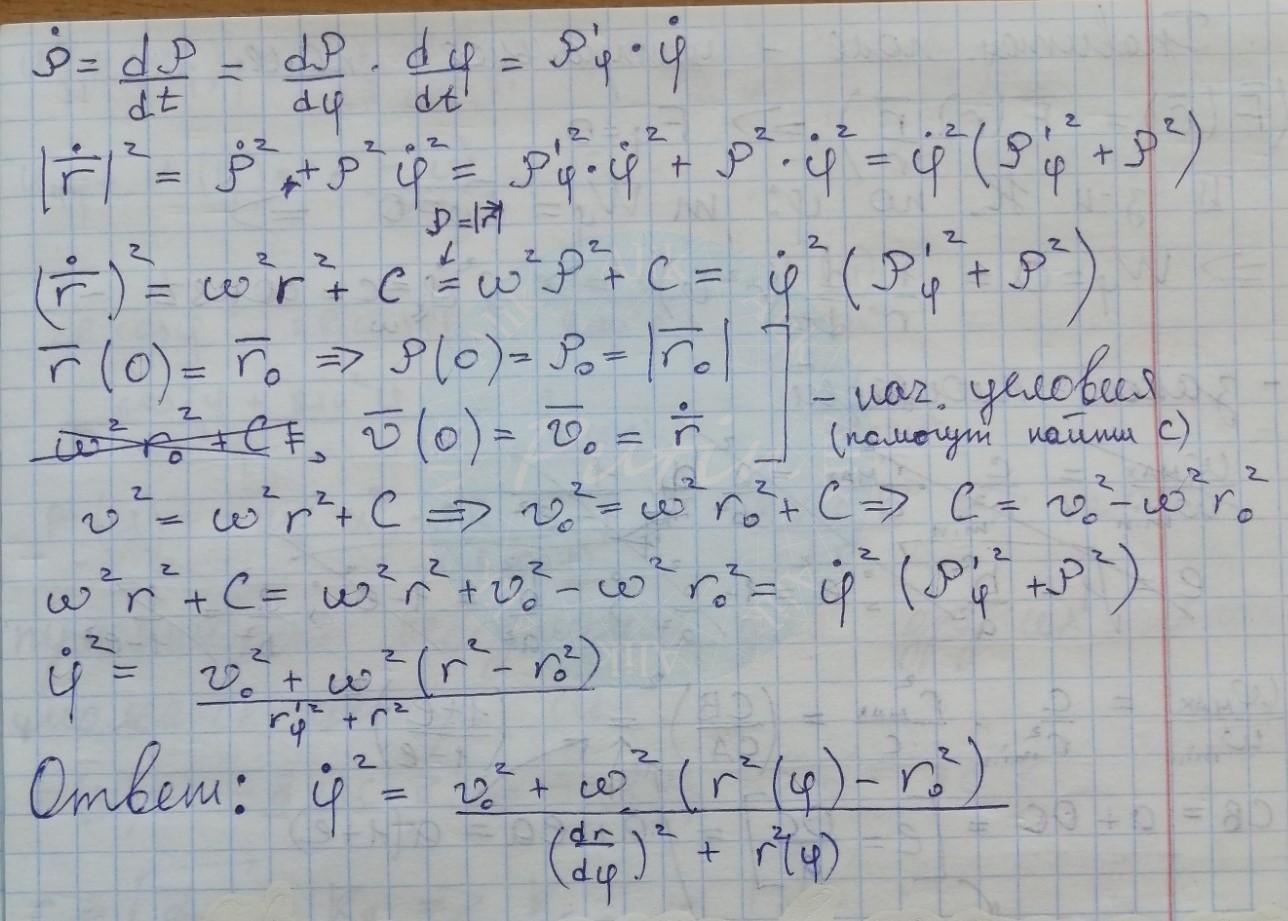 ρ̇ = dρ/dt = dρ/dφ · dφ/dt = ρ'φ · φ̇
|r̄̇|² = ρ̇² + ρ²φ̇² = ρ'φ² · φ̇² + ρ² · φ̇² = φ̇² (ρ'φ² + ρ²)
ρ = |r⃗|
(r̄̇)² = ω²r² + C = ω²ρ² + C = φ̇² (ρ'φ² + ρ²)
r̄(0) = r̄₀ => ρ(0) = ρ₀ = |r̄₀|
- нач. условия
(помогут найти C)
ω² r₀² + C =, v̄(0) = v̄₀ = r̄̇
v² = ω²r² + C => v₀² = ω² r₀² + C => C = v₀² - ω² r₀²
ω²r² + C = ω²r² + v₀² - ω² r₀² = φ̇² (ρ'φ² + ρ²)
φ̇² = (v₀² + ω² (r² - r₀²)) / (r'φ² + r²)
Ответ: φ̇² = (v₀² + ω² (r²(φ) - r₀²)) / ((dr/dφ)² + r²(φ))